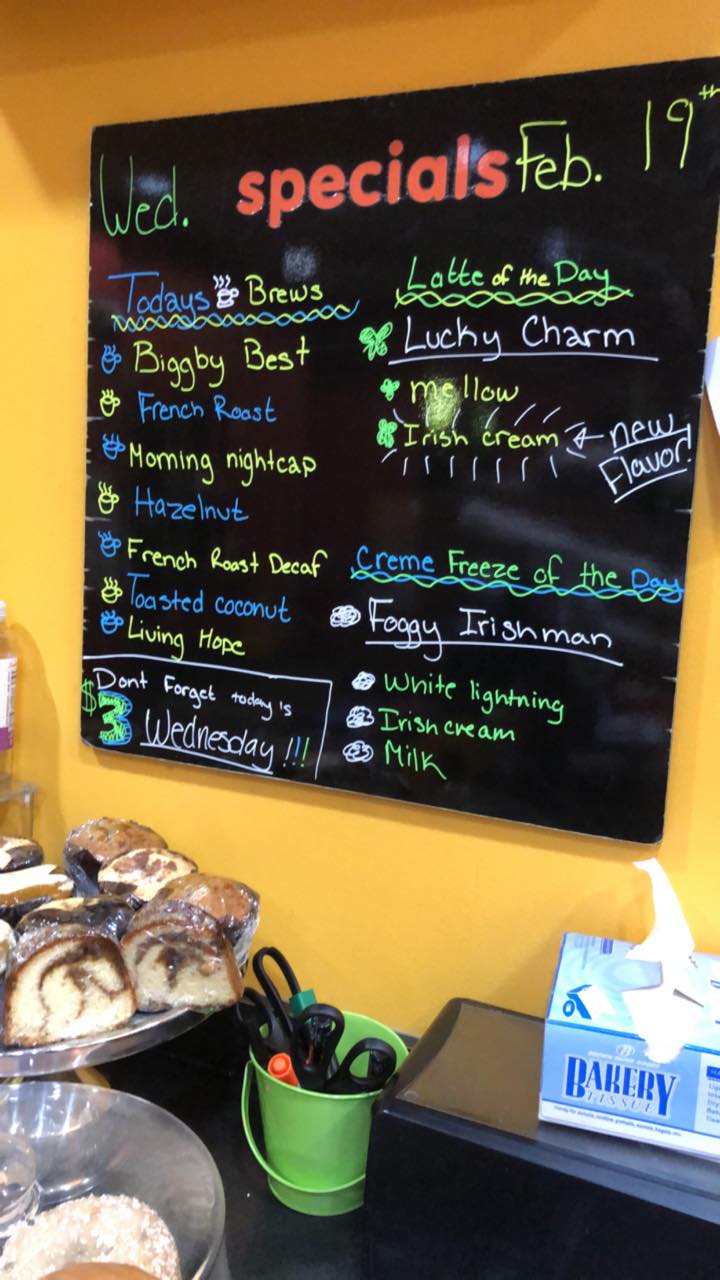 Wed. specials Feb. 19th
Todays Brews
Biggby Best
French Roast
Morning nightcap
Hazelnut
French Roast Decaf
Toasted coconut
Living Hope
Dont Forget today's
$3 Wednesday!!!
Latte of the Day
Lucky Charm
mellow
Irish cream ← new
Flavor!
Creme Freeze of the Day
Foggy Irishman
White lightning
Irish cream
Milk
BAKERY
TISSUE